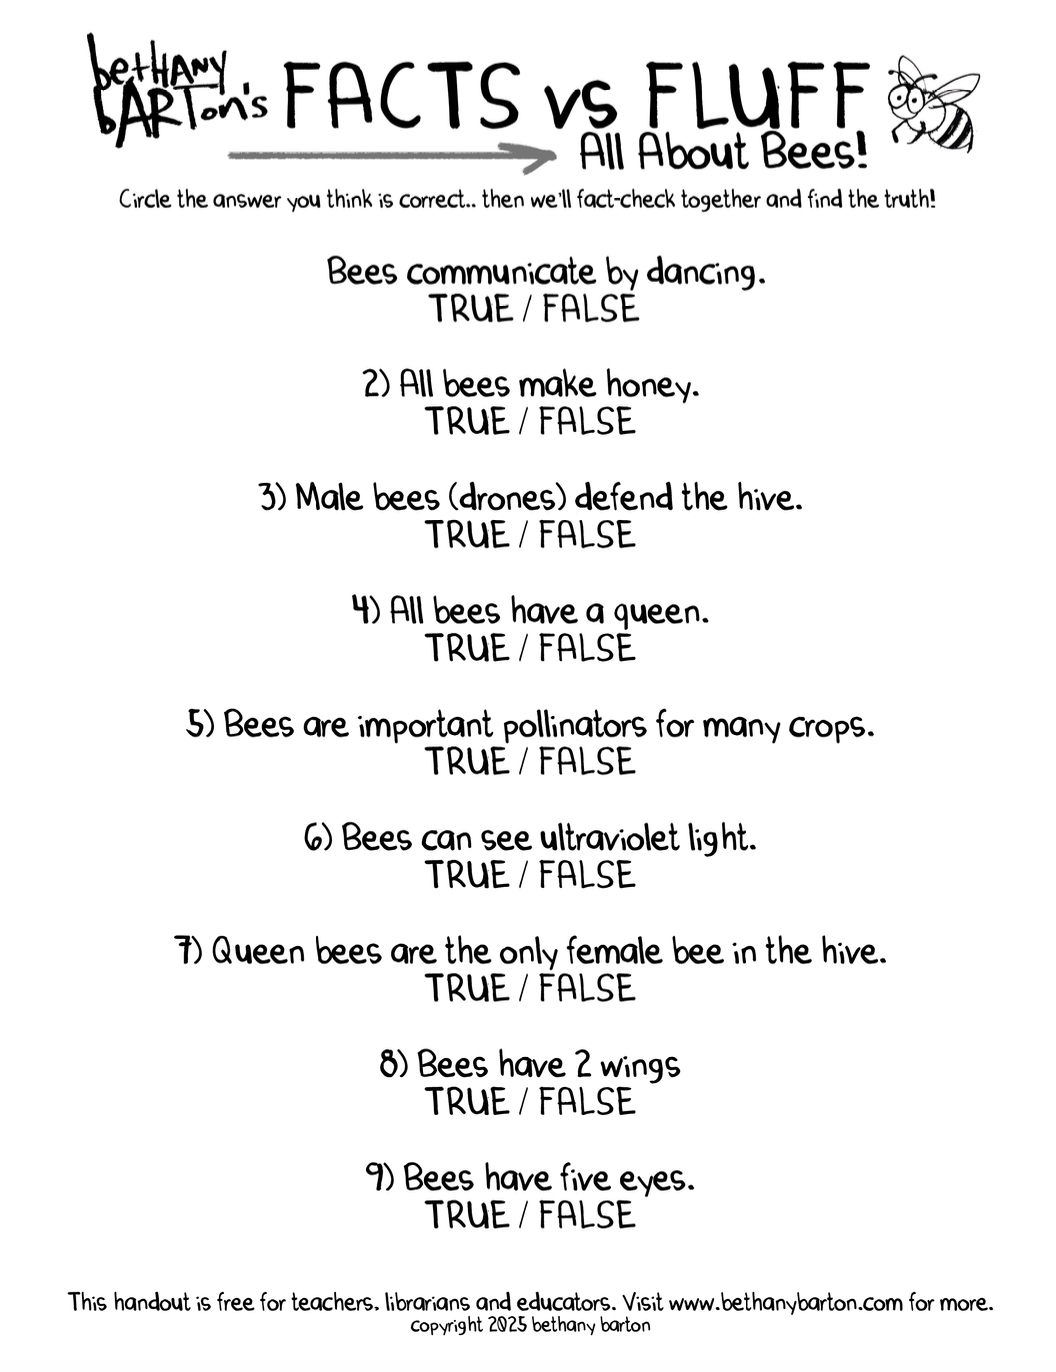 betHANY
bARTon's FACTS vs FLUFF
All About Bees!
Circle the answer you think is correct.. then we'll fact-check together and find the truth!
Bees communicate by dancing.
TRUE / FALSE
2) All bees make honey.
TRUE / FALSE
3) Male bees (drones) defend the hive.
TRUE / FALSE
4) All bees have a queen.
TRUE / FALSE
5) Bees are important pollinators for many crops.
TRUE / FALSE
6) Bees can see ultraviolet light.
TRUE / FALSE
7) Queen bees are the only female bee in the hive.
TRUE / FALSE
8) Bees have 2 wings
TRUE / FALSE
9) Bees have five eyes.
TRUE / FALSE
This handout is free for teachers, librarians and educators. Visit www.bethanybarton.com for more.
copyright 2025 bethany barton